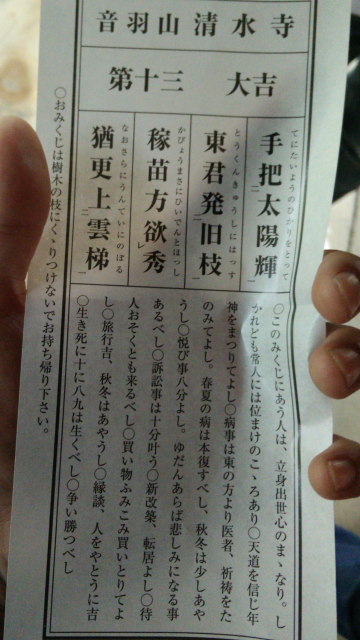 音羽山清水寺
第十三　大吉
てにたいようのひかりをとって
手把太陽輝
とうくんきゅうしにはっす
東君発旧枝
かびょうまさにひいでんとほっし
稼苗方欲秀
なおさらにうんていにのぼる
猶更上雲梯
〇このみくじにあう人は、立身出世心のまゝなり。し
かれども常人には位まけのこゝろあり〇天道を信じ年
神をまつりてよし〇病事は東の方より医者、祈祷をた
のみてよし。春夏の病は本復すべし、秋冬は少しあや
うし〇悦び事八分よし。ゆだんあらば悲しみになる事
あるべし〇訴訟事は十分叶う〇新改築、転居よし〇待
人おそくとも来るべし〇買い物ふみこみ買いとりてよ
し〇旅行吉、秋冬はあやうし〇縁談、人をやとうに吉
〇生き死に十に八九は生くべし〇争い勝つべし
〇おみくじは樹木の枝にくゝりつけないでお持ち帰り下さい。